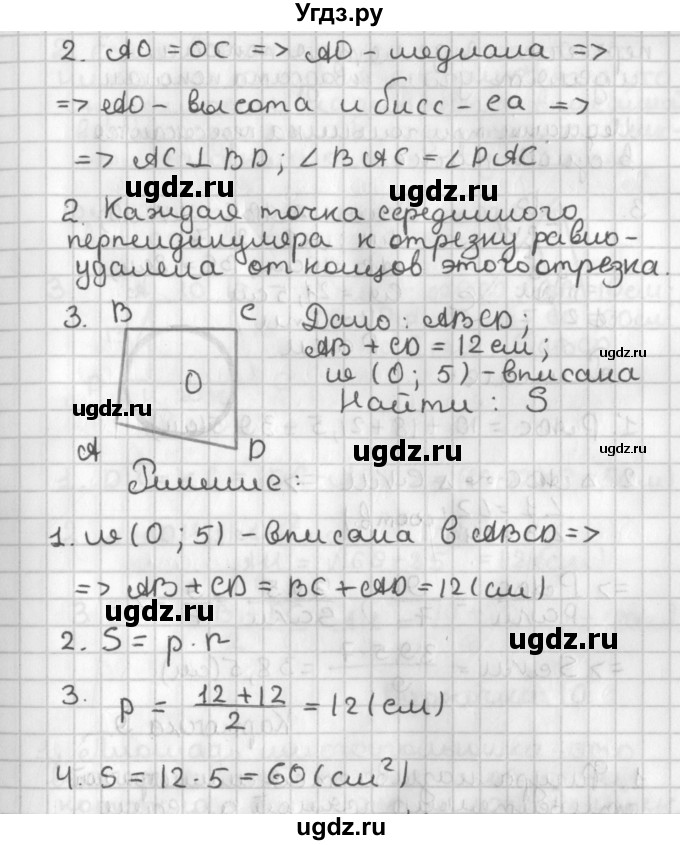 Угдз.ру
2. AO = OC => AO - медиана =>
=> AO - высота и бисс - са =>
=> AC ⊥ BD; ∠BAC = ∠DAC
ugdz.ru ugdz.ru
2. Каждая точка серединного
перпендикуляра к отрезку равно-
удалена от концов этого отрезка.
ugdz.ru ugdz.ru
3. B C Дано: ABCD;
AB + CD = 12 см;
ugdz.ru
O w (O; 5) - вписана
ugdz.ru
Найти: S
A D
ugdz.ru ugdz.ru
Решение:
1. w (O; 5) - вписана в ABCD =>
=> AB + CD = BC + AD = 12 (см)
ugdz.ru
2. S = p · r
ugdz.ru
3. p = 12 + 12 / 2 = 12 (см)
ugdz.ru
4. S = 12 · 5 = 60 (см²)
ugdz.ru ugdz.ru
ugdz.ru